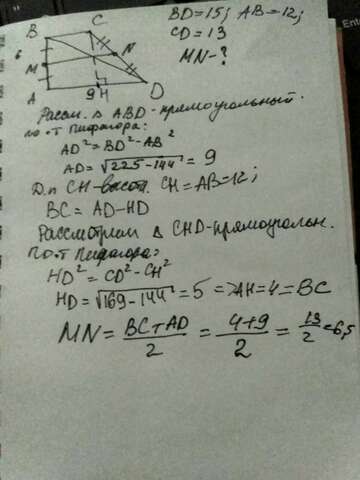 BD=15; AB=12;
CD=13
MN-?
B
C
6
M
N
A
9
H
D
Рассм. Δ ABD-прямоугольный.
по т Пифагора:
AD²=BD²-AB²
AD=√225-144=9
Д.п CH-высот. CH=AB=12;
BC=AD-HD
Рассмотрим Δ CHD-прямоугольн.
По т. Пифагора:
HD²=CD²-CH²
HD=√169-144=5 =>AH=4=BC
MN=BC+AD/2=4+9/2=13/2=6,5